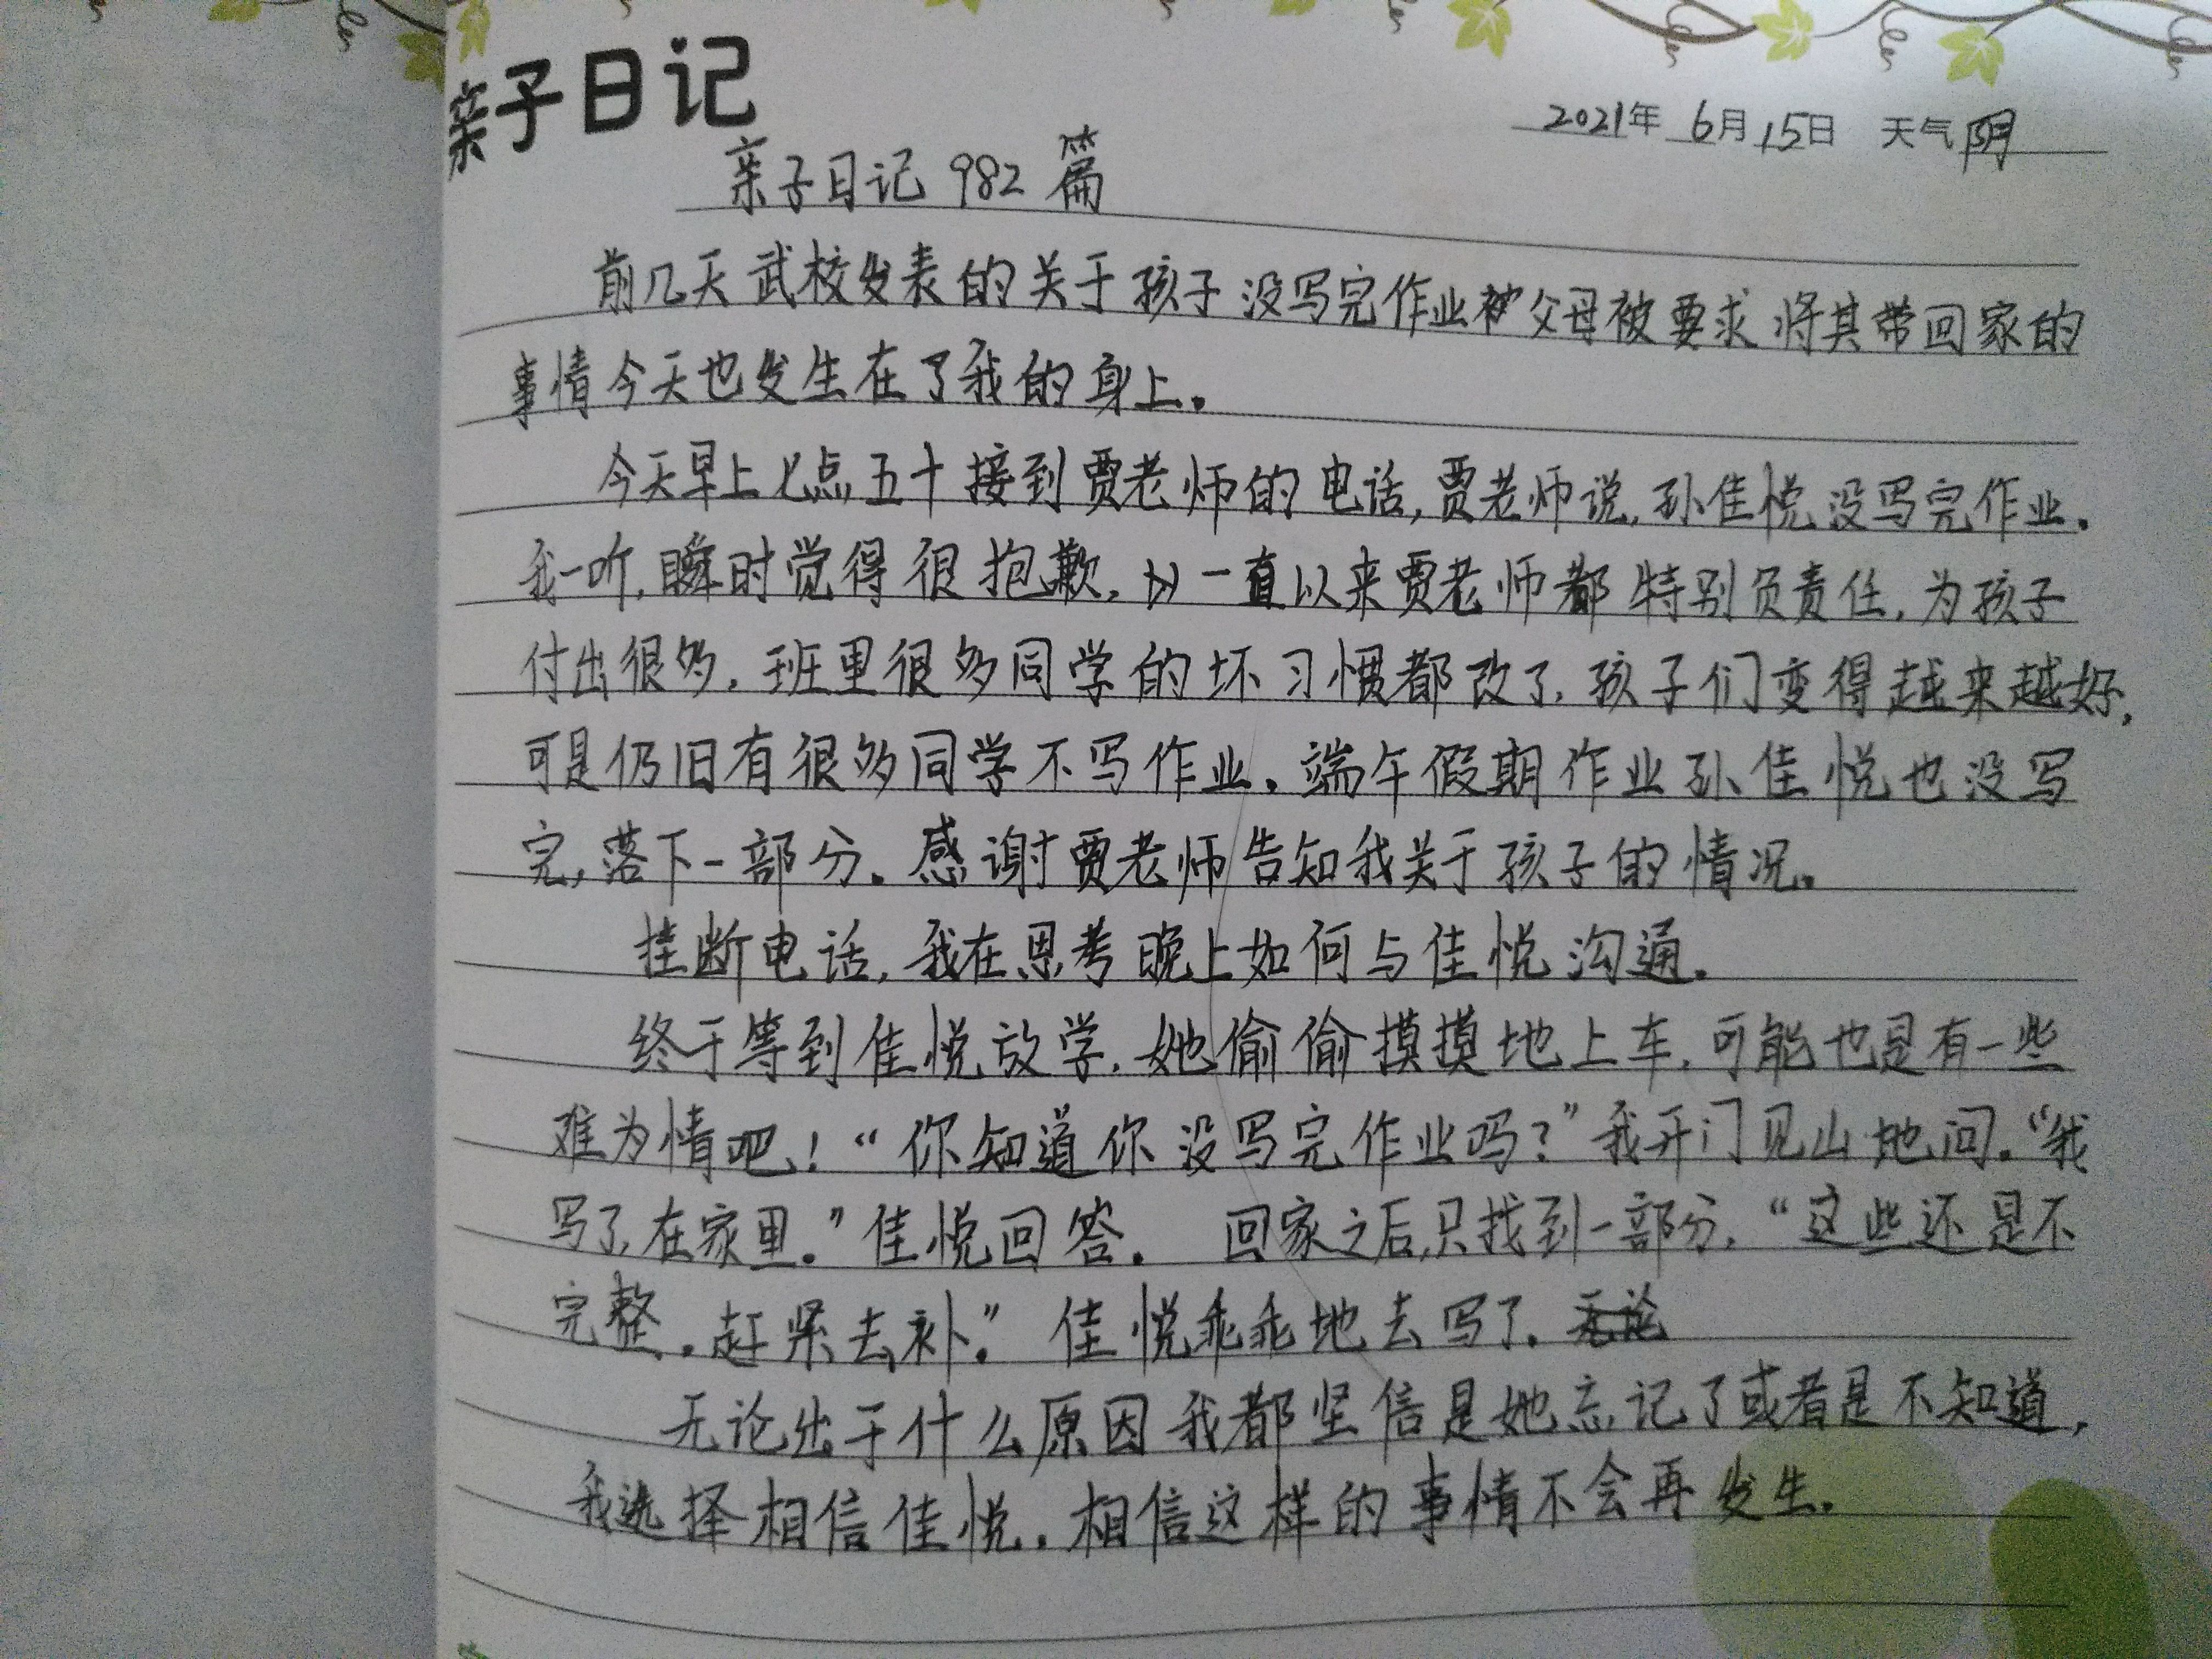 亲子日记
2021年 6月15日 天气 阴
亲子日记 982 篇
前几天武校发表的关于孩子没写完作业被父母被要求将其带回家的
事情今天也发生在了我的身上。
今天早上七点五十接到贾老师的电话,贾老师说,孙佳悦没写完作业。
我一听,瞬时觉得很抱歉,一直以来贾老师都特别负责任,为孩子
付出很多,班里很多同学的坏习惯都改了,孩子们变得越来越好,
可是仍旧有很多同学不写作业。端午假期作业孙佳悦也没写
完,落下一部分。感谢贾老师告知我关于孩子的情况。
挂断电话,我在思考晚上如何与佳悦沟通。
终于等到佳悦放学,她偷偷摸摸地上车,可能也是有一些
难为情吧!“你知道你没写完作业吗?”我开门见山地问。“我
写了,在家里。”佳悦回答。 回家之后,只找到一部分,“这些还是不
完整。赶紧去补。”佳悦乖乖地去写了。无论
无论出于什么原因我都坚信是她忘记了或者是不知道,
我选择相信佳悦,相信这样的事情不会再发生。